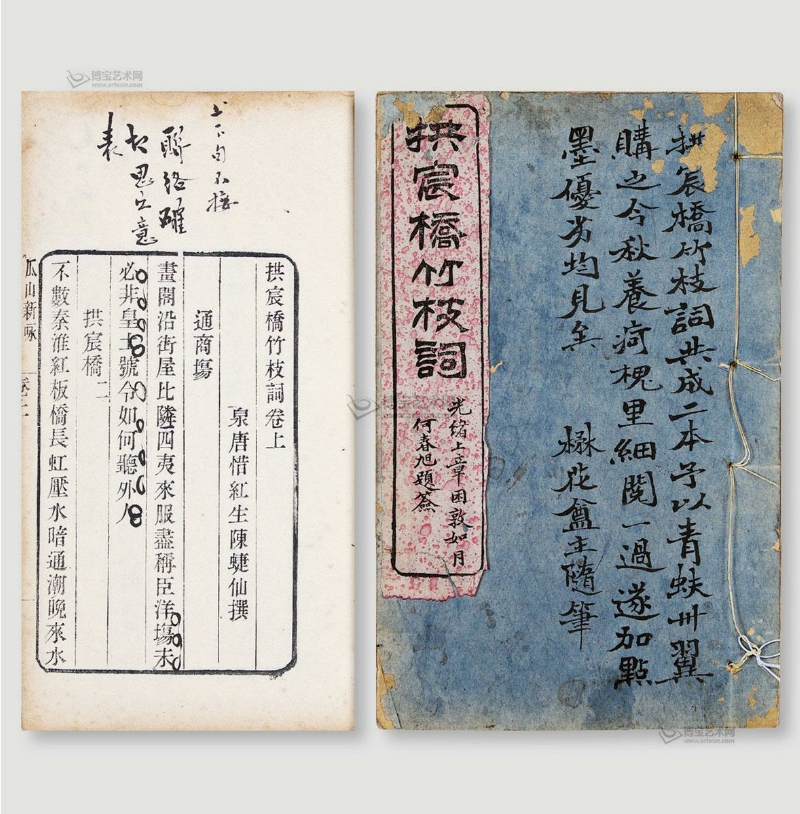 拱宸橋竹枝詞共成二本予以青蚨卅翼
購之今秋養疴槐里細閱一過遂加點
墨優劣均見矣
楙花盦主隨筆
拱宸橋竹枝詞
光緒上章困敦如月
何春旭題簽
上下句不接
聯絡確
思立意
表
拱宸橋竹枝詞卷上
泉唐惜紅生陳蜨仙撰
通商場
畫閣沿街屋比隣四夷來服盡稱臣洋場未
必非皇土號令如何聽外人
拱宸橋二
不數秦淮紅板橋長虹壓水暗通潮晚來水
瓜山新咏
博宝艺术网
www.artxun.com
博宝艺术网
www.artxun.com